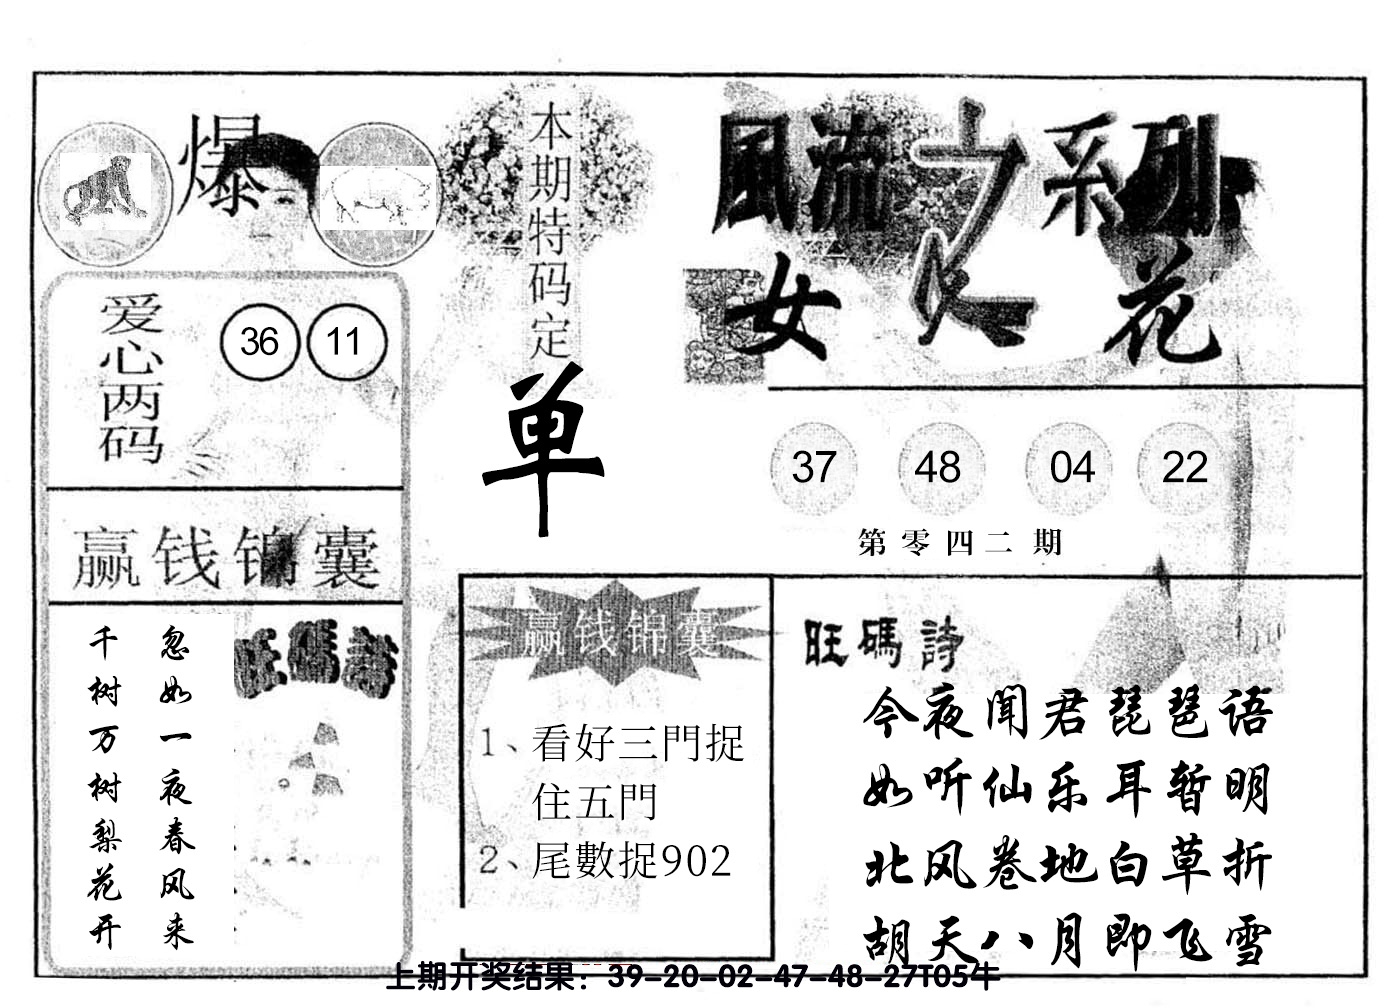 爆
本期特码定
单
風流之系列
女人花
爱心两码
36 11
37 48 04 22
第零四二期
赢钱锦囊
忽如一夜春风来
千树万树梨花开
旺碼詩
赢钱锦囊
1、看好三門捉
住五門
2、尾數捉902
旺碼詩
今夜闻君琵琶语
如听仙乐耳暂明
北风卷地白草折
胡天八月即飞雪
上期开奖结果：39-20-02-47-48-27T05牛